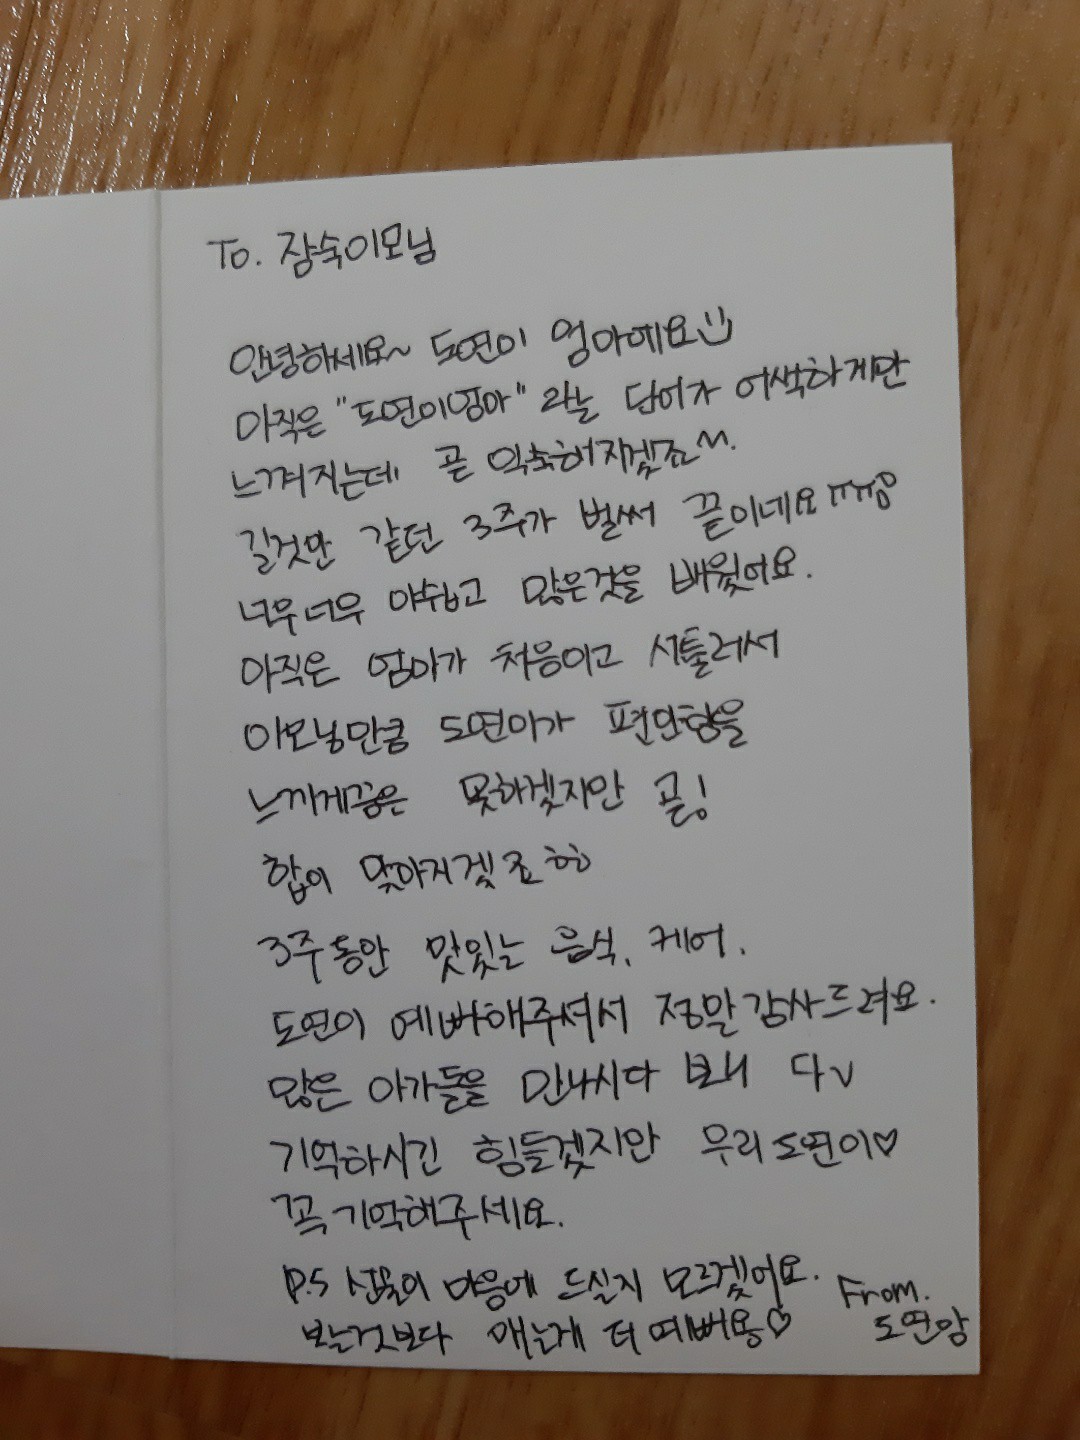 To. 잠숙이모님
안녕하세요~ 도연이 엄마예요
아직은 "도연이엄마" 라는 단어가 어색하게만
느껴지는데 곧 익숙해지겠죠^^.
길것만 같던 3주가 벌써 끝이네요 ㅠㅠ
너무너무 아쉽고 많은것을 배웠어요.
아직은 엄마가 처음이고 서툴러서
이모님만큼 도연이가 편안함을
느끼게끔은 못하겠지만 곧!
합이 맞아지겠죠 ㅎㅎ
3주동안 맛있는 음식, 케어,
도연이 예뻐해주셔서 정말 감사드려요.
많은 아가들을 만나시다 보니 다
기억하시긴 힘들겠지만 우리 도연이♡
꼭 기억해주세요.
P.S 선물이 마음에 드실지 모르겠어요.
보는것보다 매는게 더 예뻐용♡
From.
도연맘